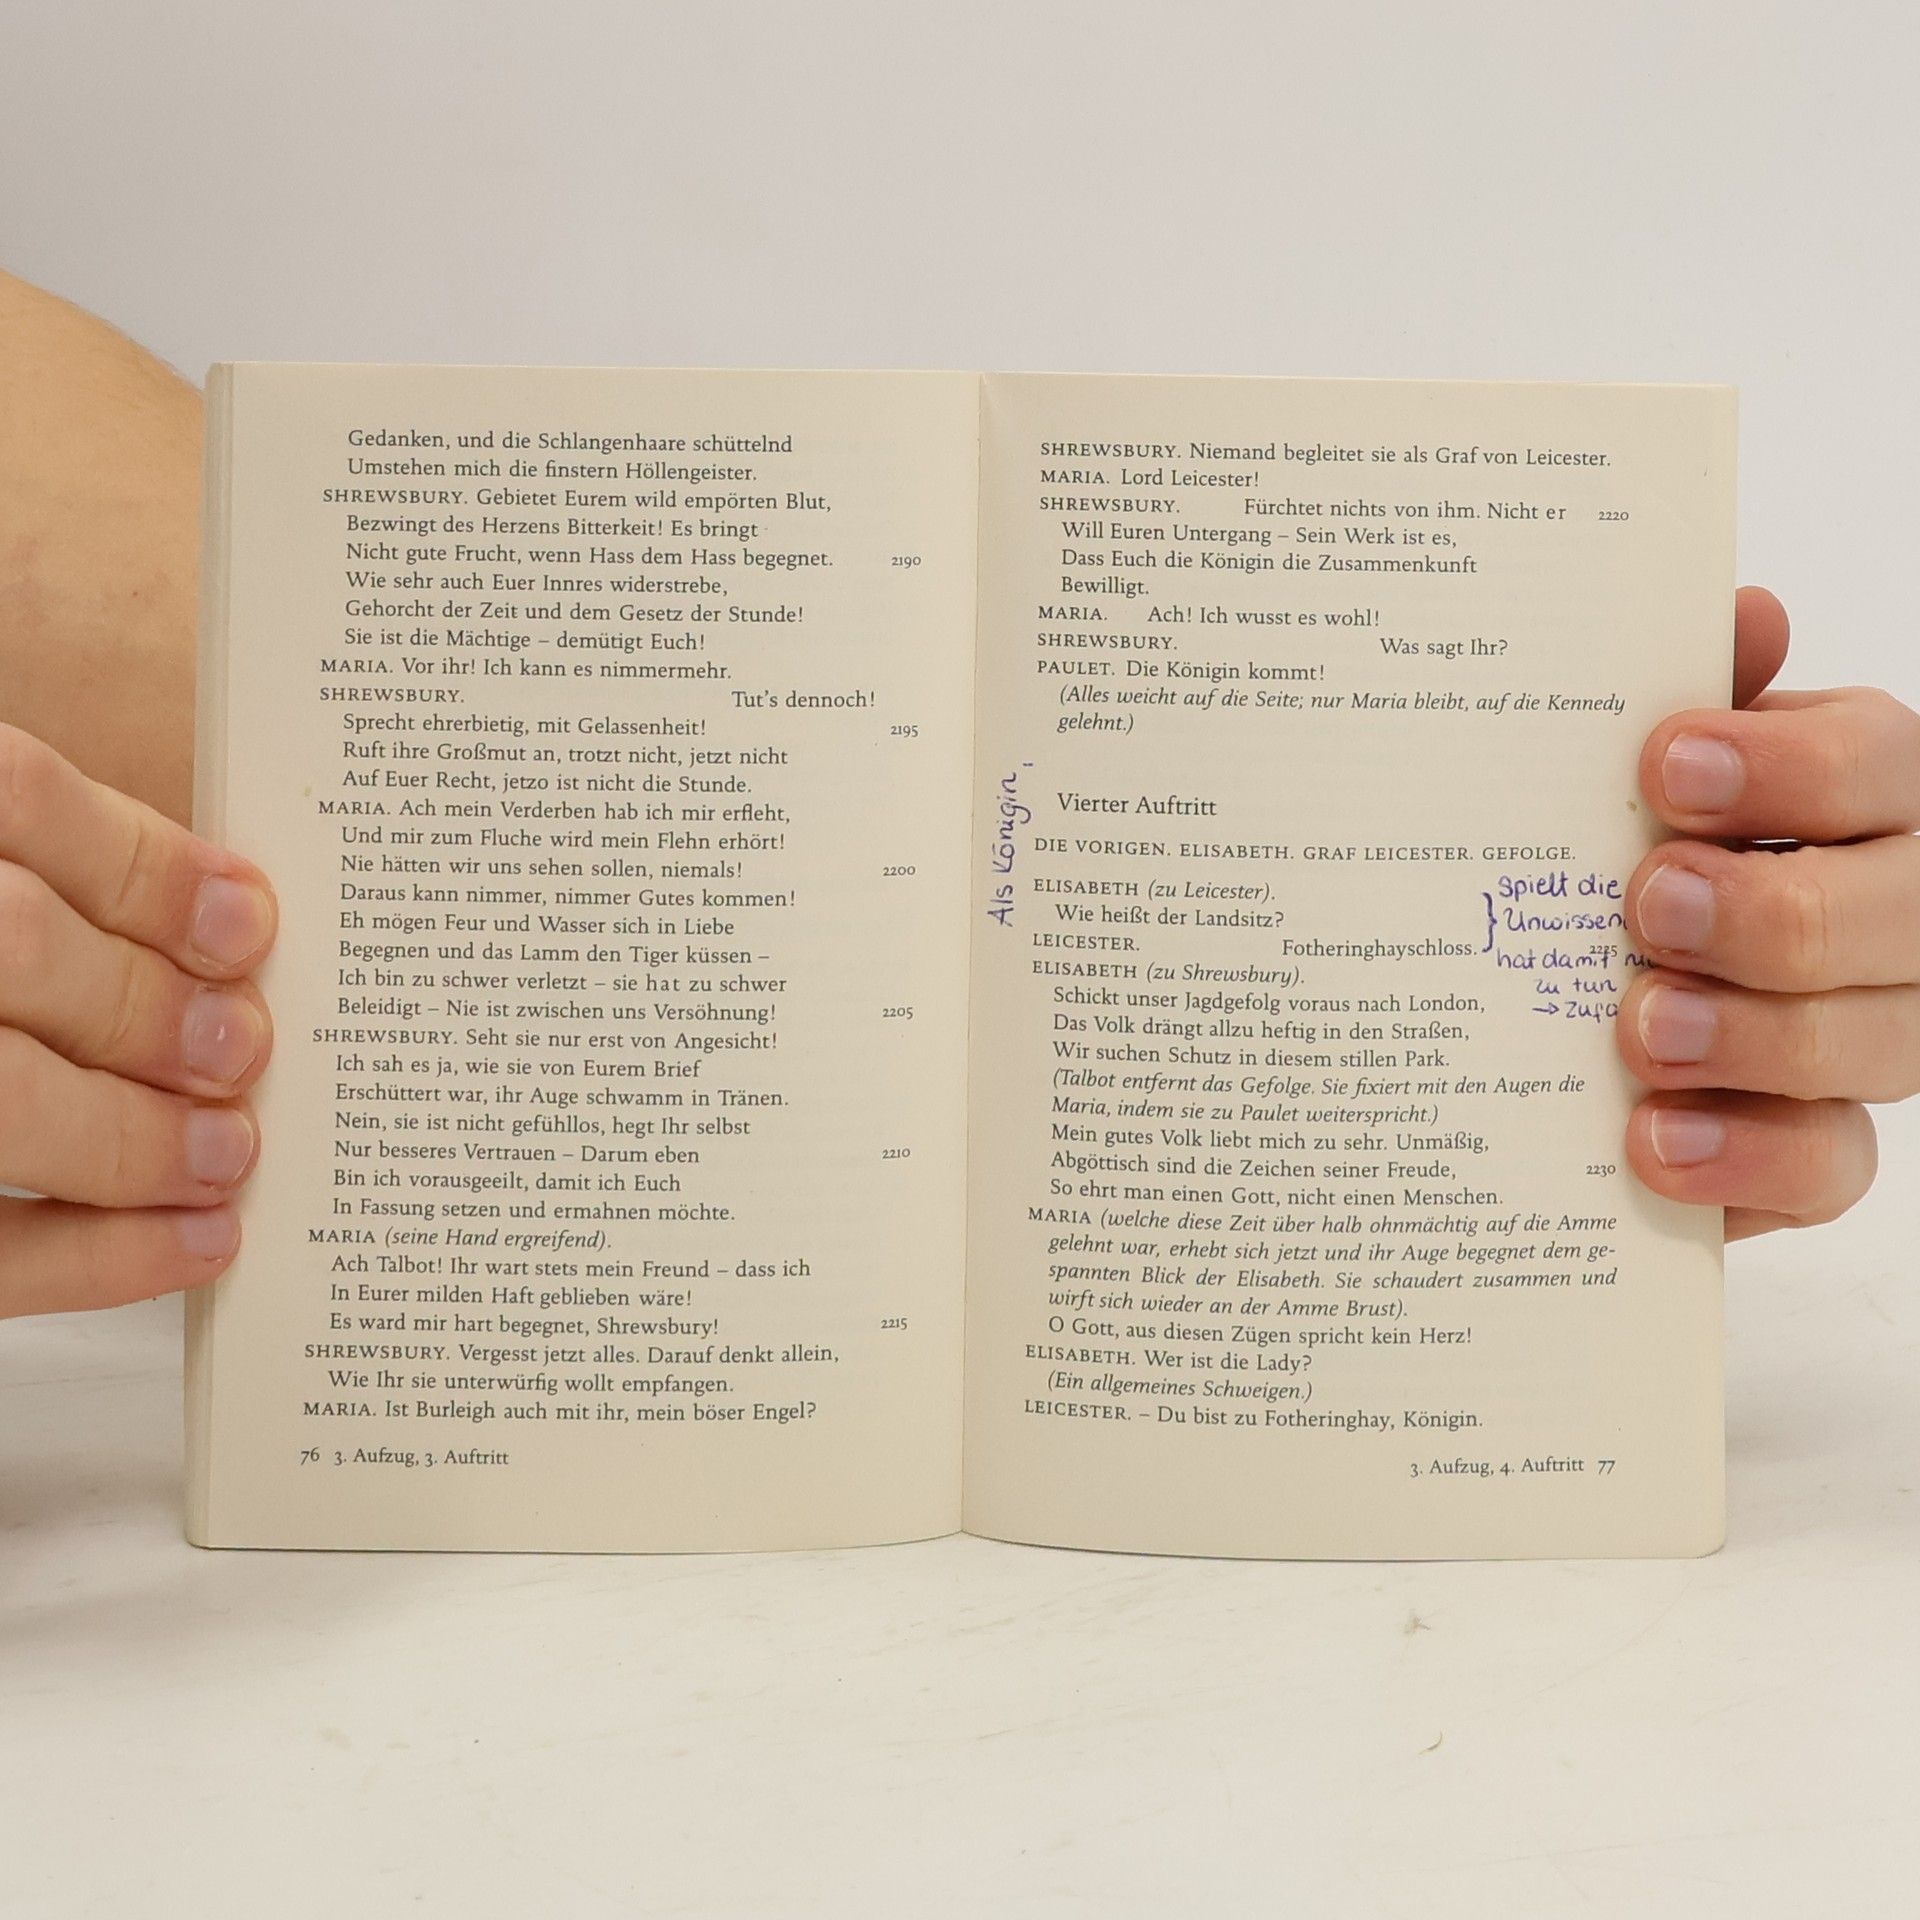 Gedanken, und die Schlangenhaare schüttelnd
Umstehen mich die finstern Höllengeister.
SHREWSBURY. Gebietet Eurem wild empörten Blut,
Bezwingt des Herzens Bitterkeit! Es bringt
Nicht gute Frucht, wenn Hass dem Hass begegnet. 2190
Wie sehr auch Euer Innres widerstrebe,
Gehorcht der Zeit und dem Gesetz der Stunde!
Sie ist die Mächtige – demütigt Euch!
MARIA. Vor ihr! Ich kann es nimmermehr.
SHREWSBURY. Tut's dennoch!
Sprecht ehrerbietig, mit Gelassenheit! 2195
Ruft ihre Großmut an, trotzt nicht, jetzt nicht
Auf Euer Recht, jetzo ist nicht die Stunde.
MARIA. Ach mein Verderben hab ich mir erfleht,
Und mir zum Fluche wird mein Flehn erhört!
Nie hätten wir uns sehen sollen, niemals! 2200
Daraus kann nimmer, nimmer Gutes kommen!
Eh mögen Feur und Wasser sich in Liebe
Begegnen und das Lamm den Tiger küssen –
Ich bin zu schwer verletzt – sie hat zu schwer
Beleidigt – Nie ist zwischen uns Versöhnung! 2205
SHREWSBURY. Seht sie nur erst von Angesicht!
Ich sah es ja, wie sie von Eurem Brief
Erschüttert war, ihr Auge schwamm in Tränen.
Nein, sie ist nicht gefühllos, hegt Ihr selbst
Nur besseres Vertrauen – Darum eben 2210
Bin ich vorausgeeilt, damit ich Euch
In Fassung setzen und ermahnen möchte.
MARIA (seine Hand ergreifend).
Ach Talbot! Ihr wart stets mein Freund – dass ich
In Eurer milden Haft geblieben wäre!
Es ward mir hart begegnet, Shrewsbury! 2215
SHREWSBURY. Vergesst jetzt alles. Darauf denkt allein,
Wie Ihr sie unterwürfig wollt empfangen.
MARIA. Ist Burleigh auch mit ihr, mein böser Engel?
76 3. Aufzug, 3. Auftritt
SHREWSBURY. Niemand begleitet sie als Graf von Leicester.
MARIA. Lord Leicester!
SHREWSBURY. Fürchtet nichts von ihm. Nicht er 2220
Will Euren Untergang – Sein Werk ist es,
Dass Euch die Königin die Zusammenkunft
Bewilligt.
MARIA. Ach! Ich wusst es wohl!
SHREWSBURY. Was sagt Ihr?
PAULET. Die Königin kommt!
(Alles weicht auf die Seite; nur Maria bleibt, auf die Kennedy
gelehnt.)
Als Königin
Vierter Auftritt
DIE VORIGEN. ELISABETH. GRAF LEICESTER. GEFOLGE.
ELISABETH (zu Leicester). spielt die
Wie heißt der Landsitz?
LEICESTER. Fotheringhayschloss. 2225
hat damit
zu tun
→
ELISABETH (zu Shrewsbury).
Schickt unser Jagdgefolg voraus nach London,
Das Volk drängt allzu heftig in den Straßen,
Wir suchen Schutz in diesem stillen Park.
(Talbot entfernt das Gefolge. Sie fixiert mit den Augen die
Maria, indem sie zu Paulet weiterspricht.)
Mein gutes Volk liebt mich zu sehr. Unmäßig,
Abgöttisch sind die Zeichen seiner Freude, 2230
So ehrt man einen Gott, nicht einen Menschen.
MARIA (welche diese Zeit über halb ohnmächtig auf die Amme
gelehnt war, erhebt sich jetzt und ihr Auge begegnet dem ge-
spannten Blick der Elisabeth. Sie schaudert zusammen und
wirft sich wieder an der Amme Brust).
O Gott, aus diesen Zügen spricht kein Herz!
ELISABETH. Wer ist die Lady?
(Ein allgemeines Schweigen.)
LEICESTER. – Du bist zu Fotheringhay, Königin.
3. Aufzug, 4. Auftritt 77